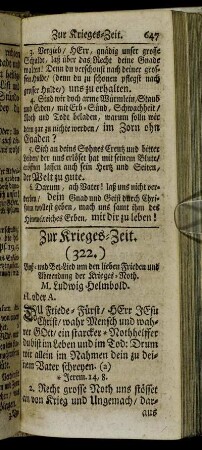 Zur Krieges-Zeit. 647
3. Vergieb, HErr, gnädig unser grosse
Schuld, laß über das Recht deine Gnade
walten! Denn du verschonst nach deiner gros-
sen Huld/ (denn du zu schonen pflegst nach
grosser Hulde) uns zu erhalten.
4. Sind wir doch arme Würmlein, Staub
und Erden, mit Erb-Sünd, Schwachheit,
Noth und Todt beladen, warum solln wir
denn gar zu nichte werden, im Zorn ohn
Gnaden?
5. Sieh an deins Sohnes Creutz und bitter
Leiden, der uns erlöset hat mit seinem Blute,
öffnen lassen auch sein Hertz und Seiten,
der Welt zu gute.
6. Darum, ach Vater! laß uns nicht ver-
derben, dein Gnad und Geist durch Chri-
stum wollest geben, mach uns samt ihm des
Himmelreiches Erben, mit dir zu leben!
Zur Krieges-Zeit.
(322.)
Buß- und Bet-Lied um den lieben Frieden und
Abwendung der Krieges-Noth.
M. Ludwig Helmbold.
H. oder A.
DU Friede-Fürst/ HErr JEsu
Christ/ wahr Mensch und wah-
rer GOtt/ ein starcker Nothhelffer
du bist im Leben und im Tod: Drum
wir allein im Nahmen dein zu dei-
nem Vater schreyen. (2)
* Jerem. 14, 8.
2. Recht grosse Noth uns stösset
an von Krieg und Ungemach/ dar-
aus